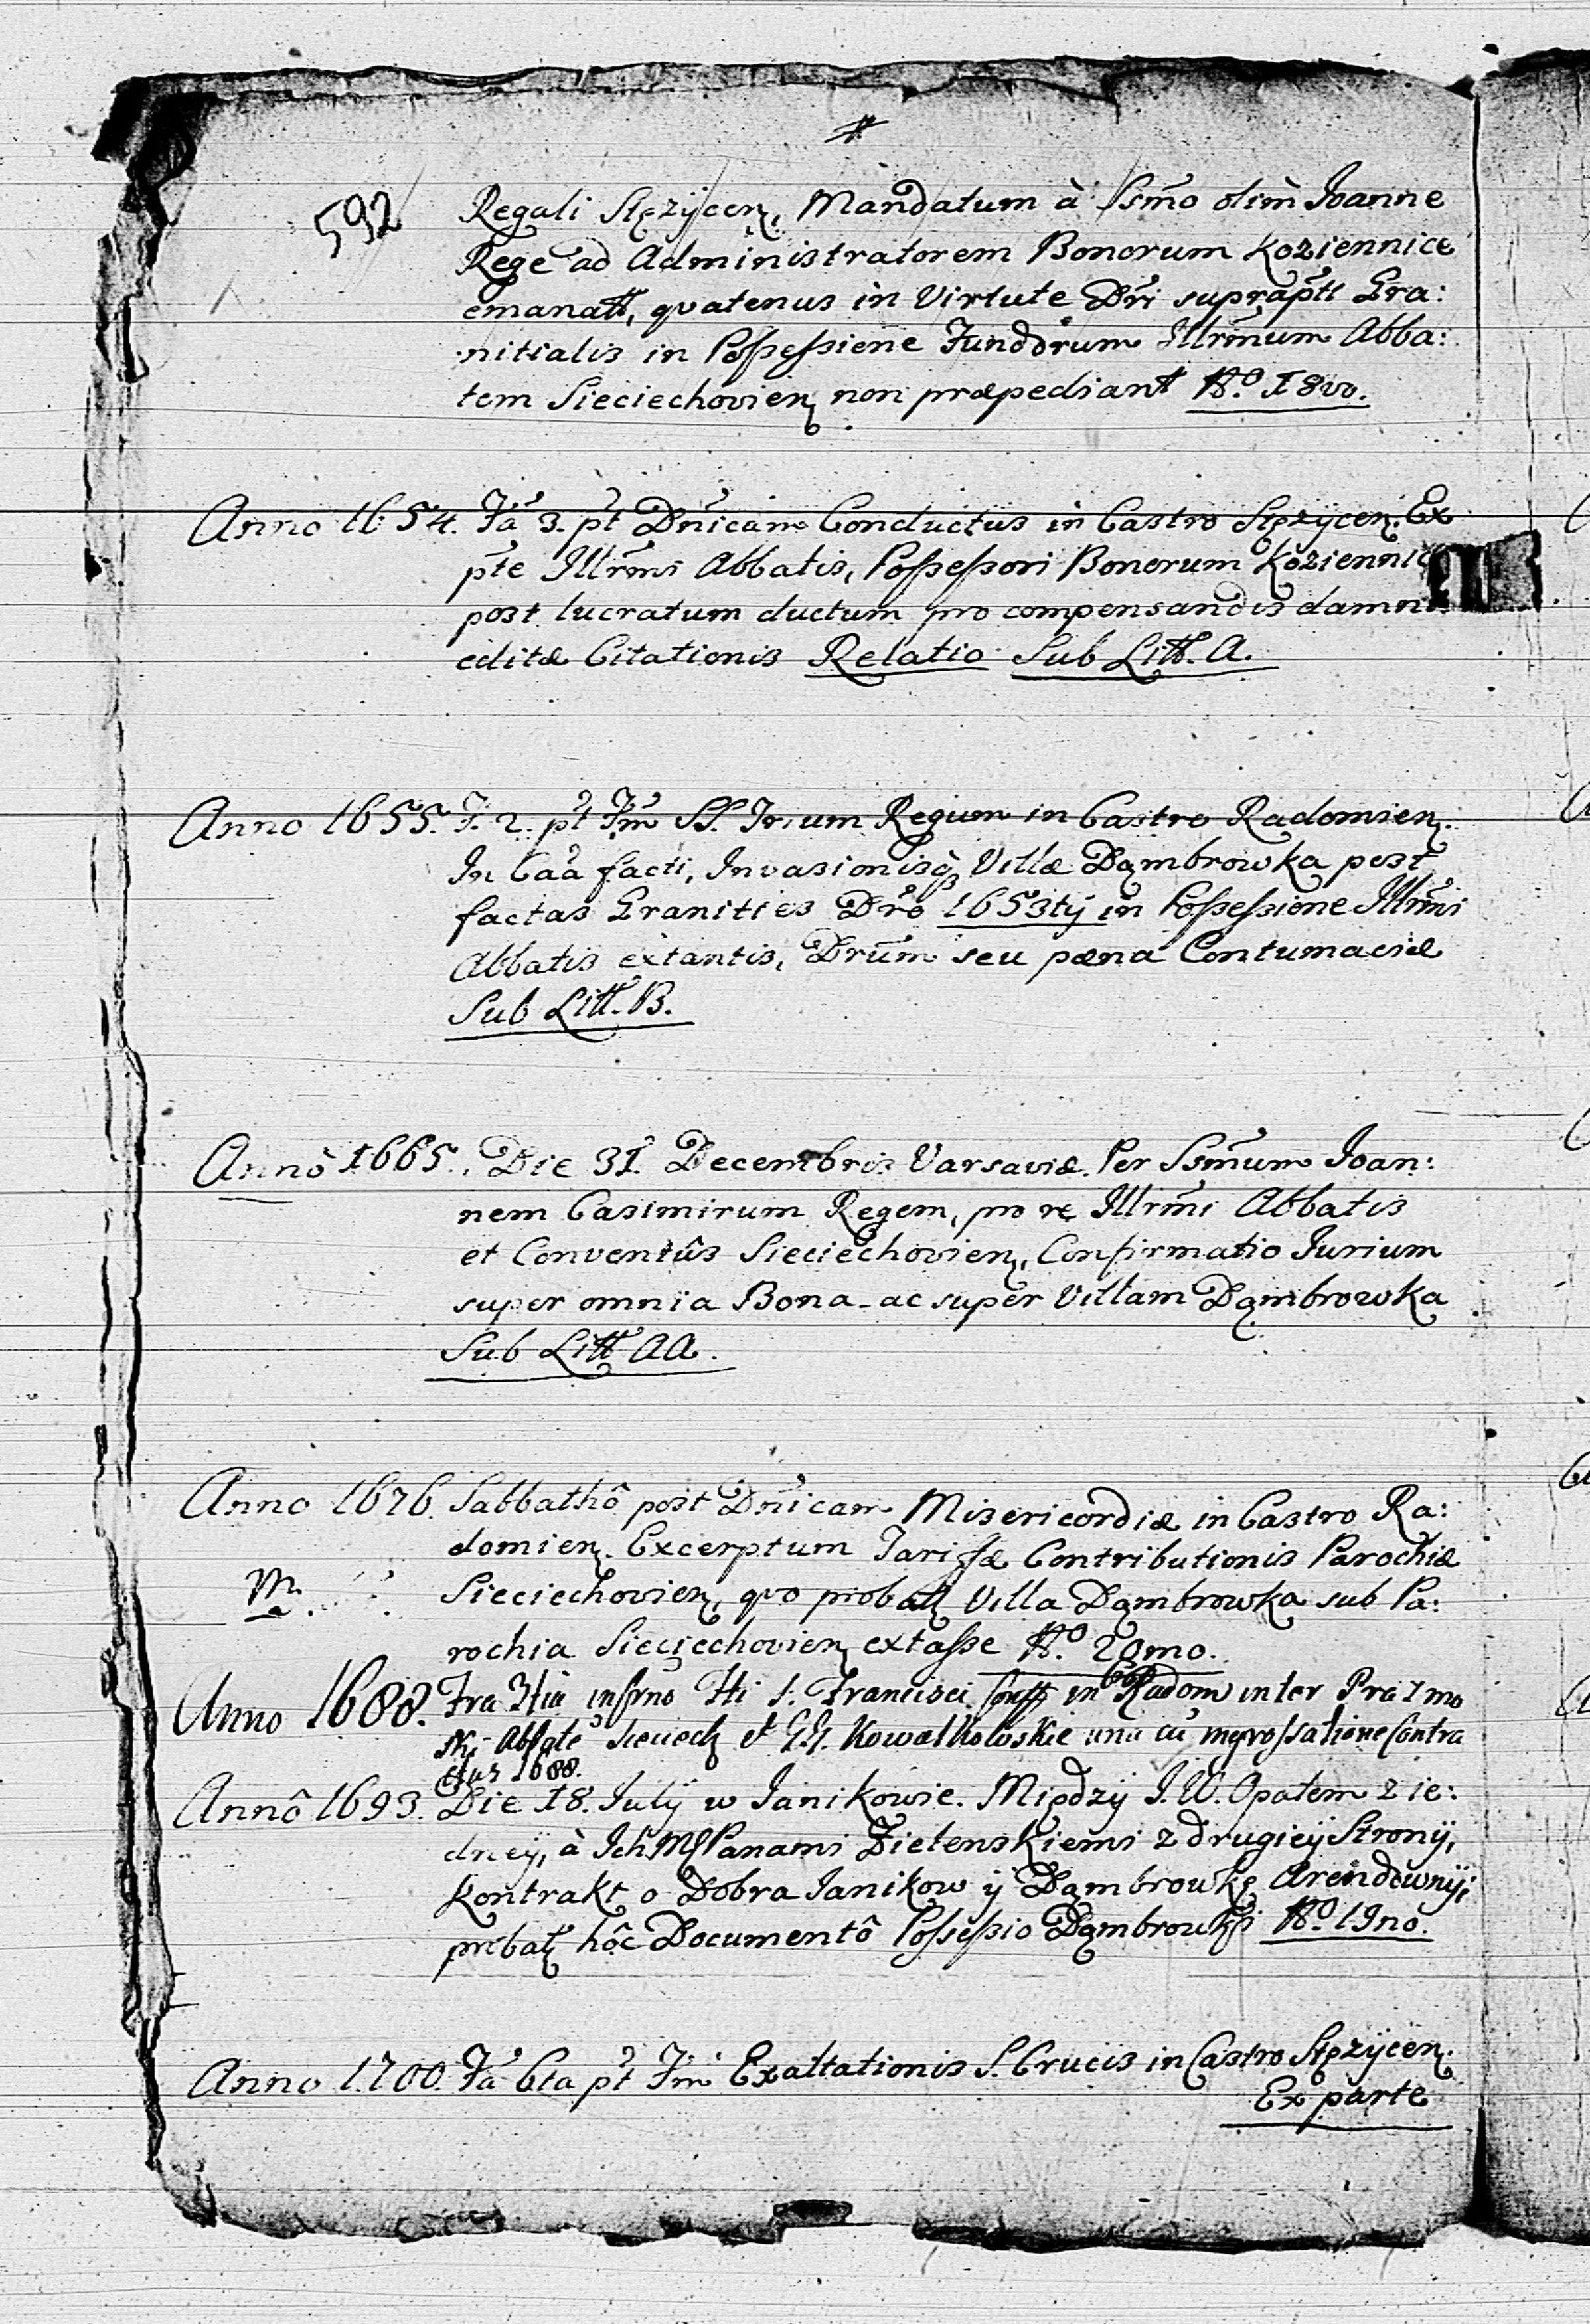 592
Regali Stęzÿcen. Mandatum à Ssm̃o olim̀ Joanne
Rege ad Administratorem Bonorum Koziennice
emanatt, quatenus in Virtute Dr̃i suprap̃ti Gra:
nitialis in Possessione Fundorum Illrm̃um Abba:
tem Sieciechovien non præpediant No. 18vo.
Anno 1654. Fã 3. p̃t Dnĩcam Conductus in Castro Stęzÿcen. Ex
pt̃e Illrm̃i Abbatis, Possessori Bonorum Koziennic
post lucratum ductum pro compensandis damn
editæ Citationis Relatio Sub Litt. A.
Anno 1655. F. 2. p̃t F̃m SS. Trium Regum in Castro Radomien.
In Cãa facti, Invasionisq Villæ Dąmbrowka post
factas Granities Dr̃o 1653tÿ in Possessione Illrm̃i
Abbatis extantis, Drũm seu pæna Contumaciæ
Sub Litt. B.
Annô 1665. Die 31. Decembris Varsaviæ. Per Ssm̃um Joan:
nem Casimirum Regem, pro re Illrm̃i Abbatis
et Conventûs Sieciechovien, Confirmatio Jurium
super omnia Bona ac super Villam Dąmbrowka
Sub Litt AA.
Anno 1676. Sabbathô post Dnĩcam Misericordiæ in Castro Ra:
domien. Excerptum Tariffæ Contributionis Parochiæ
Sieciechovien, quo probatt Villa Dąmbrowka sub Pa:
rochia Sieciechovien extasse No. 20mo.
Anno 1688. Fra 3tia in Sti S. Francisci in Radom inter Prazmo
ski Abbate Sieciech et GG. Kowalkolvskie una cu ingrossatione Contra
ctus 1688.
Annô 1693. Die 18. Julÿ w Janikowie. Międzÿ J.W. Opatem z ie:
dneÿ, à Ich M Panami Zielenskiemi z drugieÿ Stronÿ,
Kontrakt o Dobra Janikow ÿ Dąmbrowkę Arendownÿ;
probatt hôc Documentô Possessio Dąmbrowki No. 19no.
Anno 1700. Fã 6ta p̃t F̃m Exaltationis S. Crucis in Castro Stęzÿcen.
Ex parte